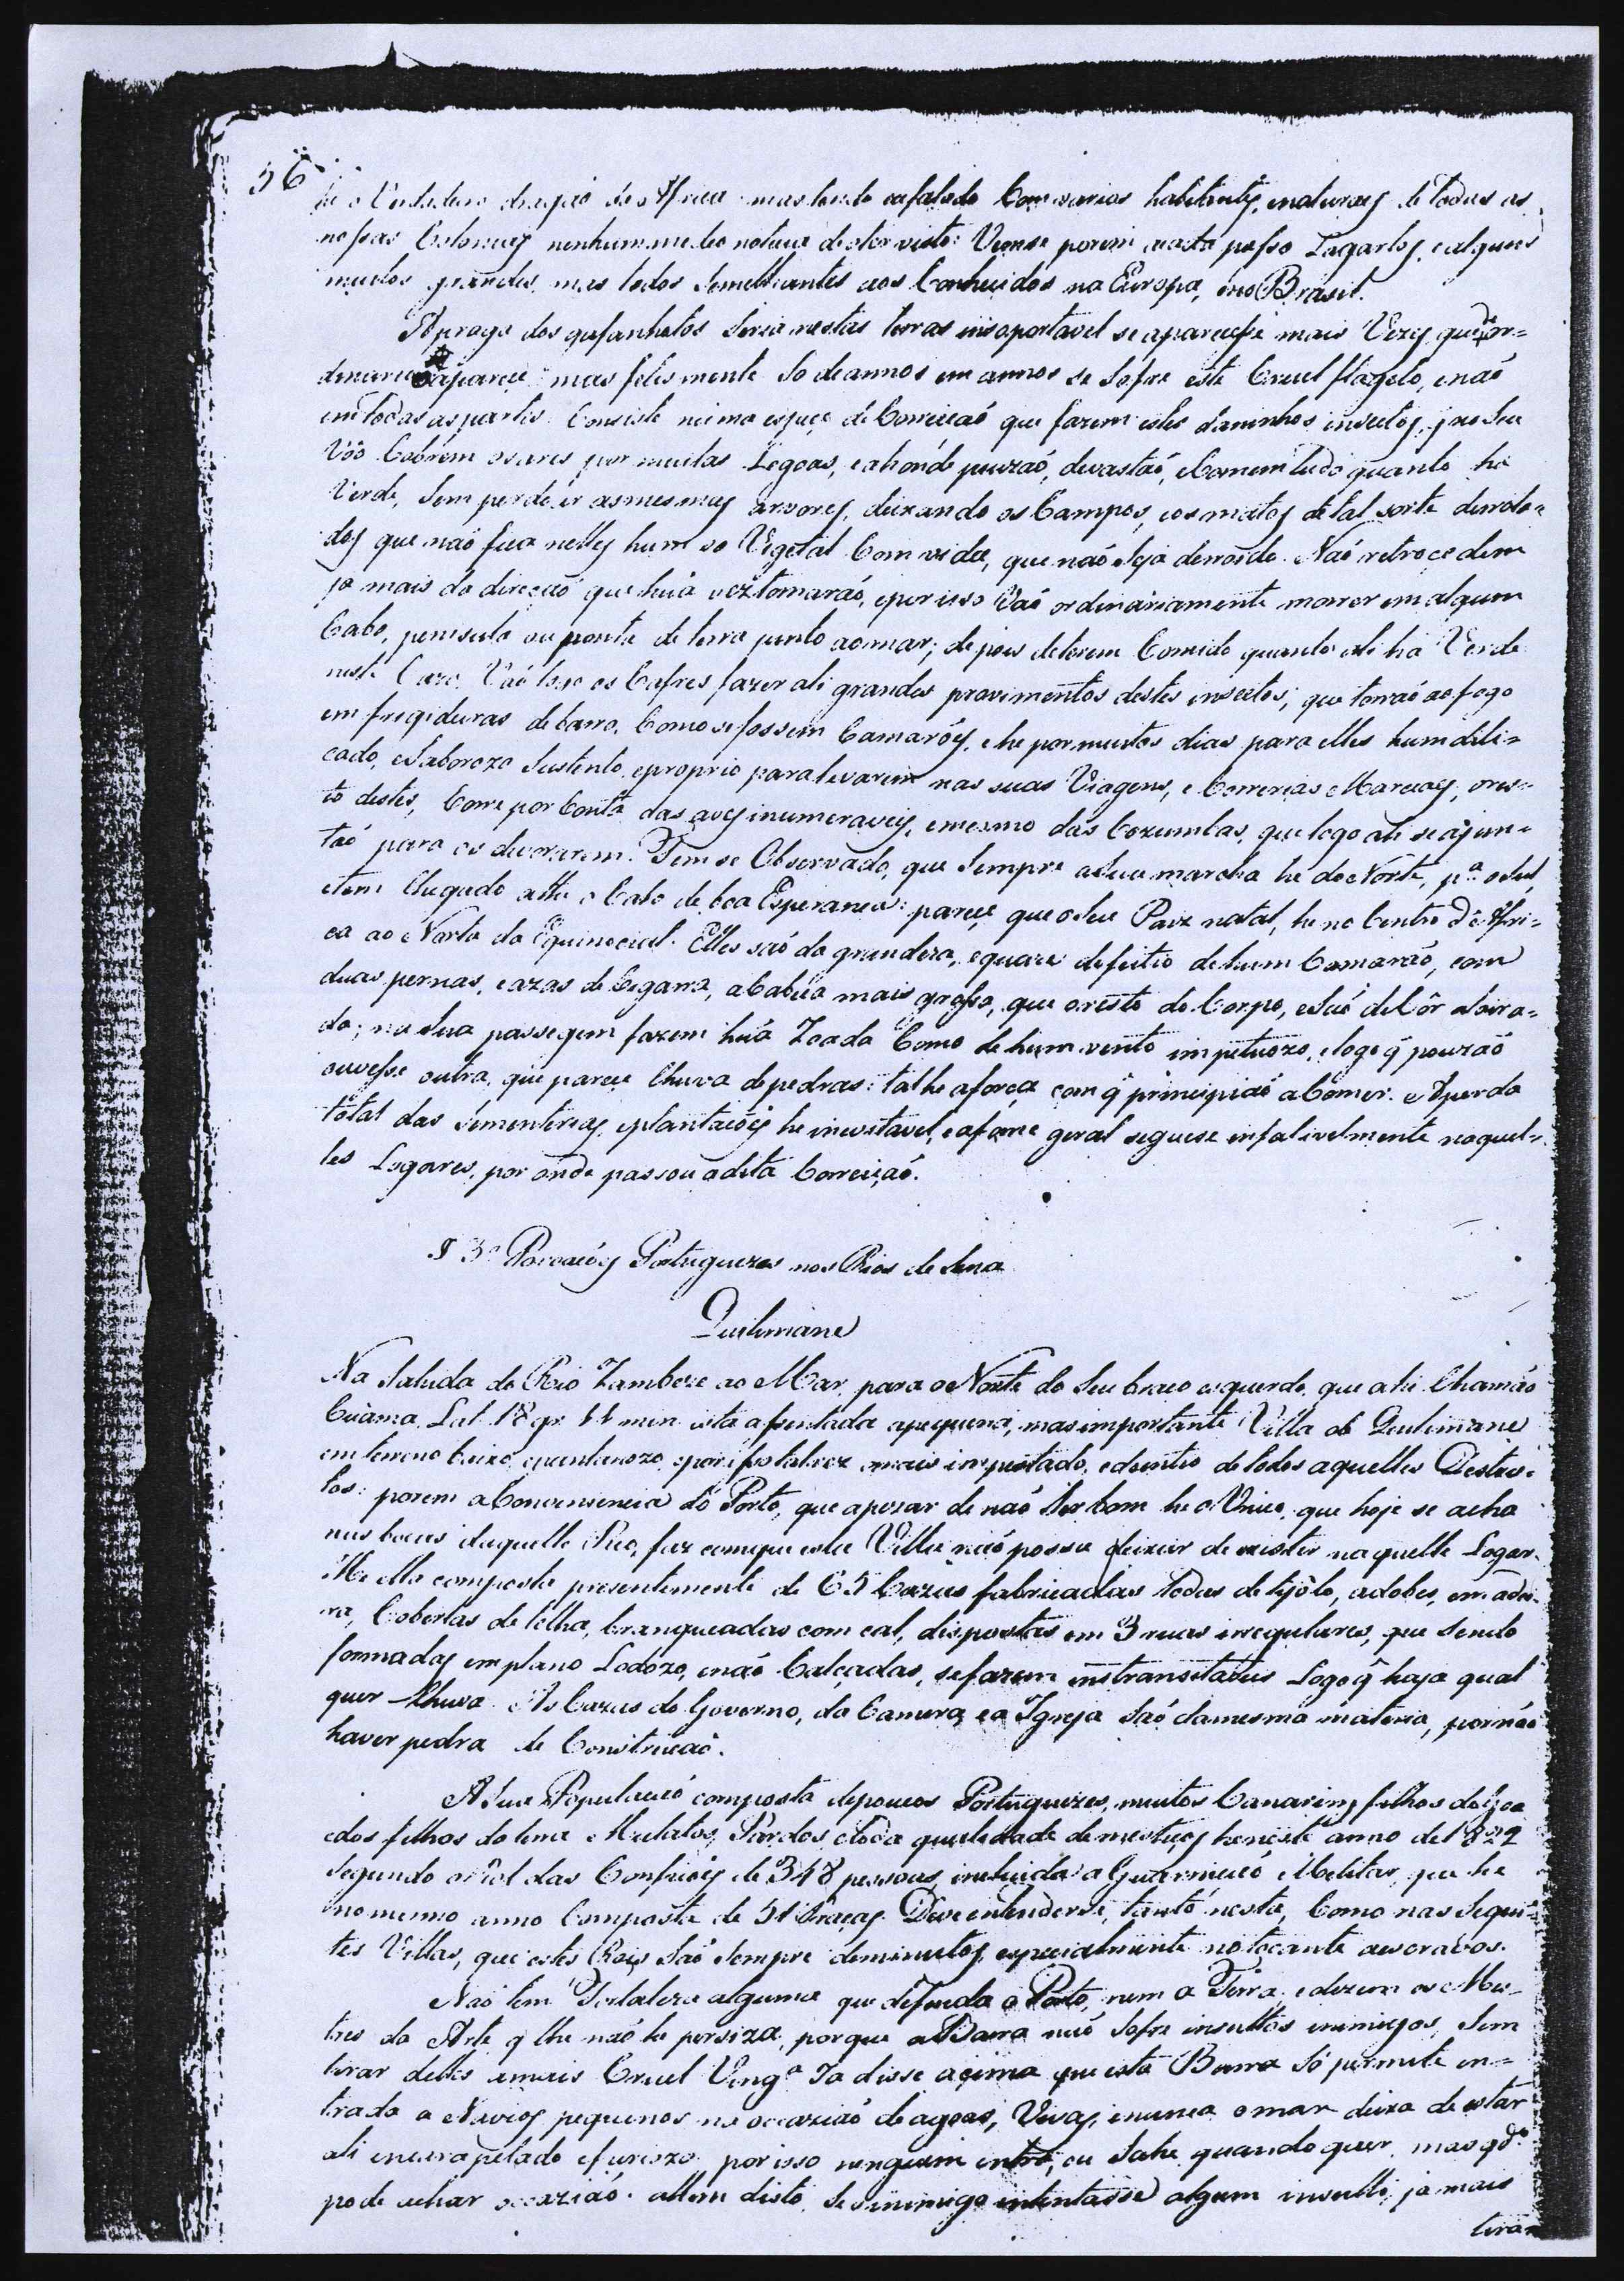 56
he o Verdadeiro dragaõ de Africa mas tendo eu falado Com varios habitantes, e naturaes de todas as
nossas Colonias nenhum me deo noticia de o ter visto: Vemse porem a cada passo Lagartos, e alguns
muitos grandes, mas todos Semelhantes aos Conhecidos na Europa, e no Brasil.
A praga dos gafanhotos Seria nestas terras insoportavel se aparecesse mais Vezes que or=
dinariamente aparece mas felismente So de annos em annos se Sofre este Cruel flagelo, e naõ
em todas as partes. Consiste n'uma especie de Correiçaõ que fazem estes daninhos insectos, q no Seu
Vôo Cobrem os ares por muitas Legoas, e ahonde pouzaõ, devastaõ, e Comem tudo quanto ha
Verde, Sem perdoar as mesmas arvores, deixando os Campos, e os matos de tal sorte derrota=
dos que naõ fica nelles hum so Vegetal Com vida, que naõ Seja denoide. Naõ retrocedem
ja mais da direçaõ que huã vez tomaraõ, e por isso Vaõ ordinariamente morrer em algum
Cabo, peninsula ou ponta de terra junto ao mar; depois de terem Comido quanto ali ha Verde
neste Cazo. Vaõ logo os Cafres fazer ali grandes provimentos destes insectos; que torraõ ao fogo
em frigideiras de barro, Como se fossem Camarões, e he por muitos dias para elles hum deli=
cado, e Saborozo Sustento, e proprio para levarem nas suas Viagens, e Correrias Marciaes, o res=
to destes, Corre por Conta das aves inumeraveis, e mesmo das Cozumbas, que logo ali se ajun=
taõ para os devorarem. Temse Observado, que Sempre a Sua marcha he do Norte, pª o Sul,
e tem Chegado athe o Cabo de boa Esperança: parece que o Seu Paiz natal, he no Centro d'Afri=
ca ao Norte do Equinocial. Elles saõ da grandeza, e quazi do feitio de hum Camaraõ, com
duas pernas, e azas de Cegarra, a Cabeça mais grossa, que o resto do Corpo, e Saõ de Côr aloira=
da; na Sua passagem fazem huã Zoada Como de hum vento impetuozo, e logo q̃ pouzaõ
ouvesse outra, que parece Chuva de pedras: tal he a força com q̃ principiaõ a Comer. A perda
total das Sementeiras, e plantaçoẽs he inevitavel, e a fome geral seguese infalivelmente naquel=
les Logares, por onde passou a dita Correiçaõ.
§ 3º Povoaçoẽs Portuguezas nos Rios de Sena
Quilimane
Na Sahida do Rio Zambeze ao Mar para o Norte do Seu braço esquerdo, que ahi Chamaõ
Cuama Lat. 18 gr. 11 min. esta assentada a pequena, mas importante Villa de Quilimane
em terreno baixo, e pantanozo, e por isso talvez o mais impestado, e doentio de todos aquelles Destric=
tos: porem a Conveniencia do Porto, que apezar de naõ Ser bom he o Unico, que hoje se acha
nas bocas daquelle Rio, faz com que esta Villa naõ possa deixar de existir naquelle Logar.
He ella composta presentemente de 65 Cazas fabricadas todas de tijôlo, adobes, e madei=
ra, Cobertas de telha, branqueadas com cal, dispostas em 3 ruas irregulares, que Sendo
formadas em plano Lodozo, e naõ Calçadas, se fazem instransitaveis Logo q̃ haja qual
quer Chuva. As Cazas do Governo, da Camara, e a Igreja Saõ da mesma materia, por naõ
haver pedra de Construcaõ.
A Sua Populaçaõ composta de poucos Portuguezes, muitos Canarins filhos de Goa
e dos filhos da terra Mulatos, Pardos, e toda qualidade de mestiços he neste anno de 1822
Segundo o Rol das Confisoẽs de 348 pessoas, incluida a Guarniçaõ Militar, que he
no mesmo anno Composta de 51 Praças. Deve entenderse, tanto nesta, Como nas Seguin=
tes Villas, que estes Rois Saõ Sempre deminutos, especialmente no tocante a escravos.
Naõ tem Fortaleza alguma que defenda o Porto, nem a Terra, e dizem os Mes=
tres da Arte q̃ lhe naõ he perciza, porque a Barra naõ Sofre insultos inimigos, Sem
tirar delles a mais Cruel Vingª. Ja disse acima que esta Barra Só permite en=
trada a Navios pequenos na occaziaõ de agoas, Vivas, e nunca o mar deixa de estar
ali encarapelado e furiozo por isso ninguem entra, ou Sahe quando quer, mas qdº
pode achar occaziaõ. alem disto, Se o inimigo intentasse algum insulto, ja mais
tirar